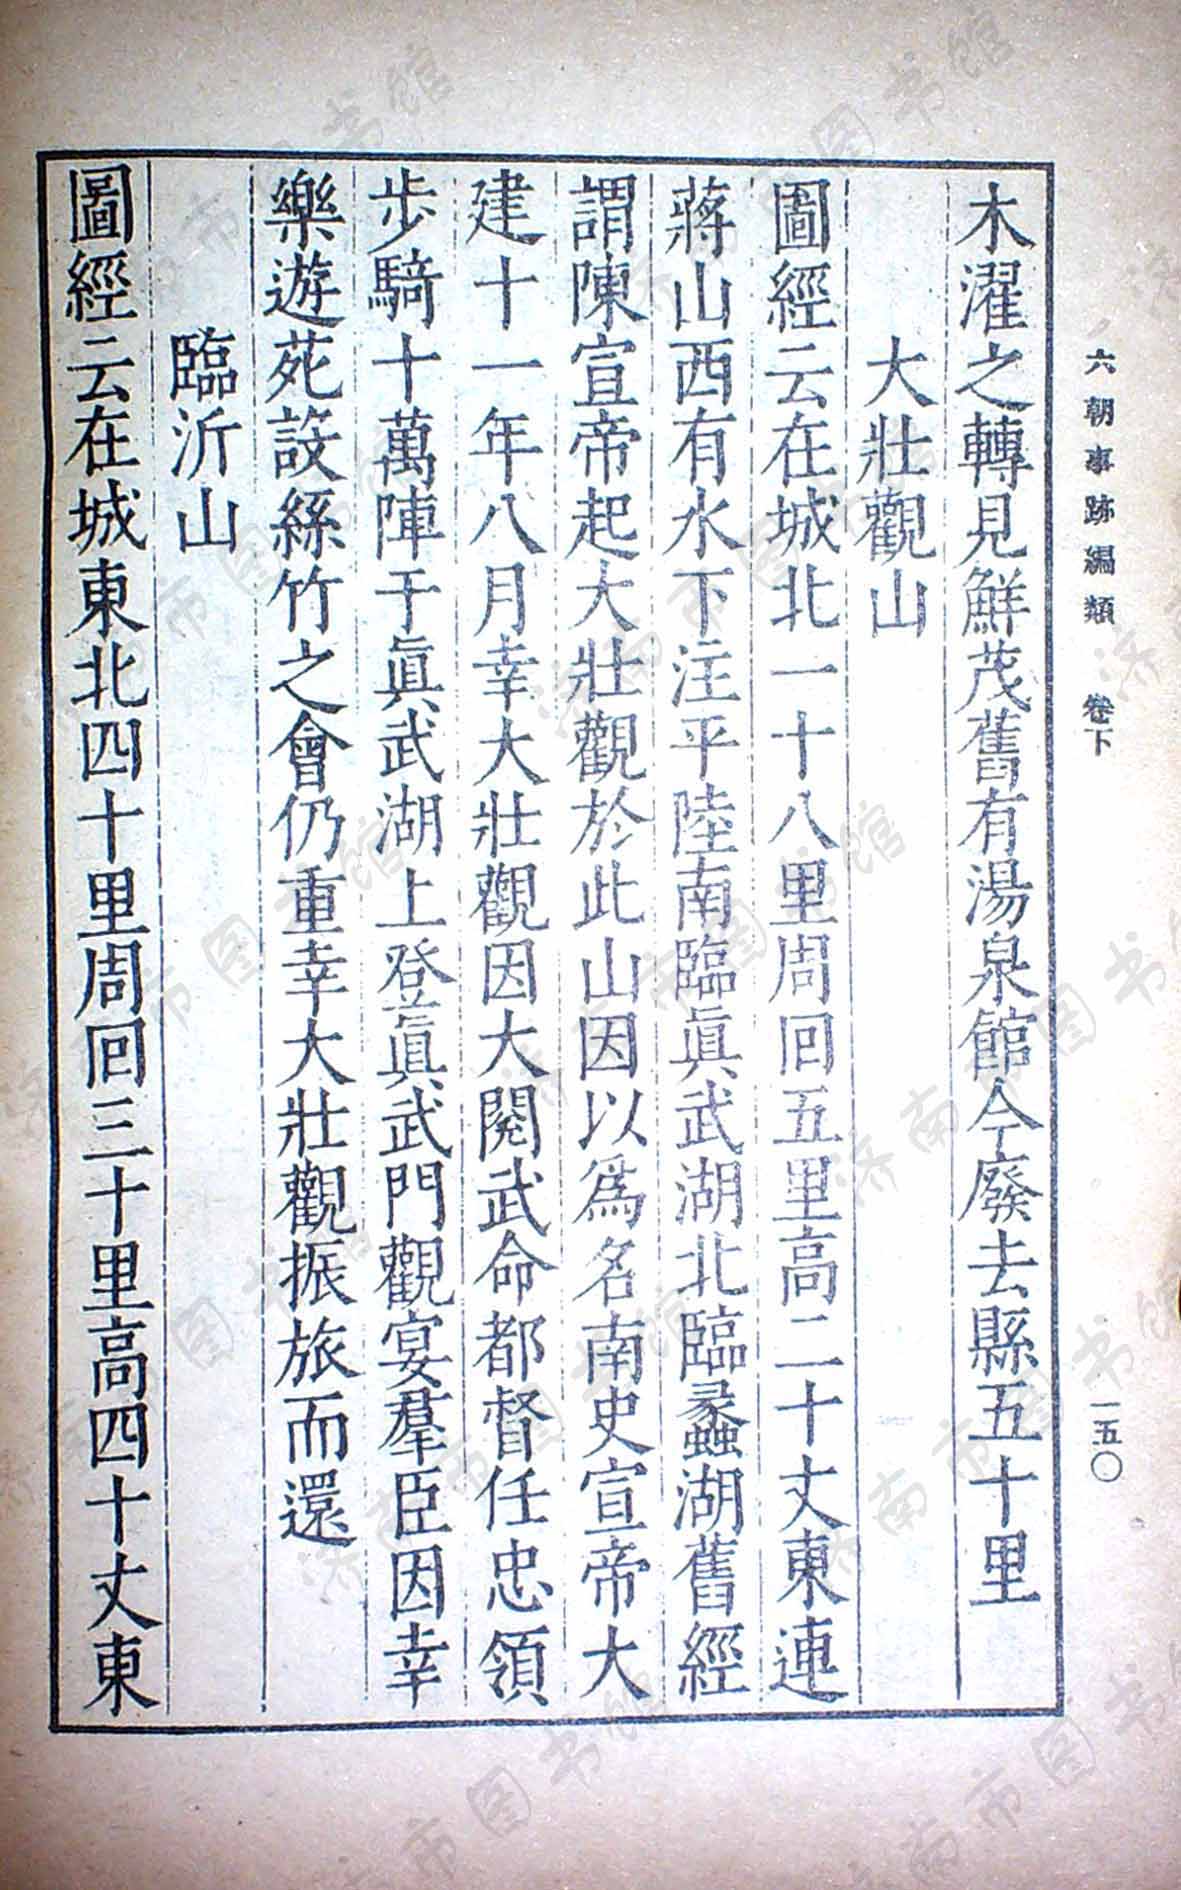 六朝事跡編類 卷下 一五〇
木濯之轉見鮮茂舊有湯泉館今廢去縣五十里
大壯觀山
圖經云在城北一十八里周回五里高二十丈東連
蔣山西有水下注平陸南臨眞武湖北臨蠡湖舊經
謂陳宣帝起大壯觀於此山因以爲名南史宣帝大
建十一年八月幸大壯觀因大閱武命都督任忠領
步騎十萬陣于眞武湖上登眞武門觀宴羣臣因幸
樂遊苑設絲竹之會仍重幸大壯觀振旅而還
臨沂山
圖經云在城東北四十里周回三十里高四十丈東
济南市图书馆